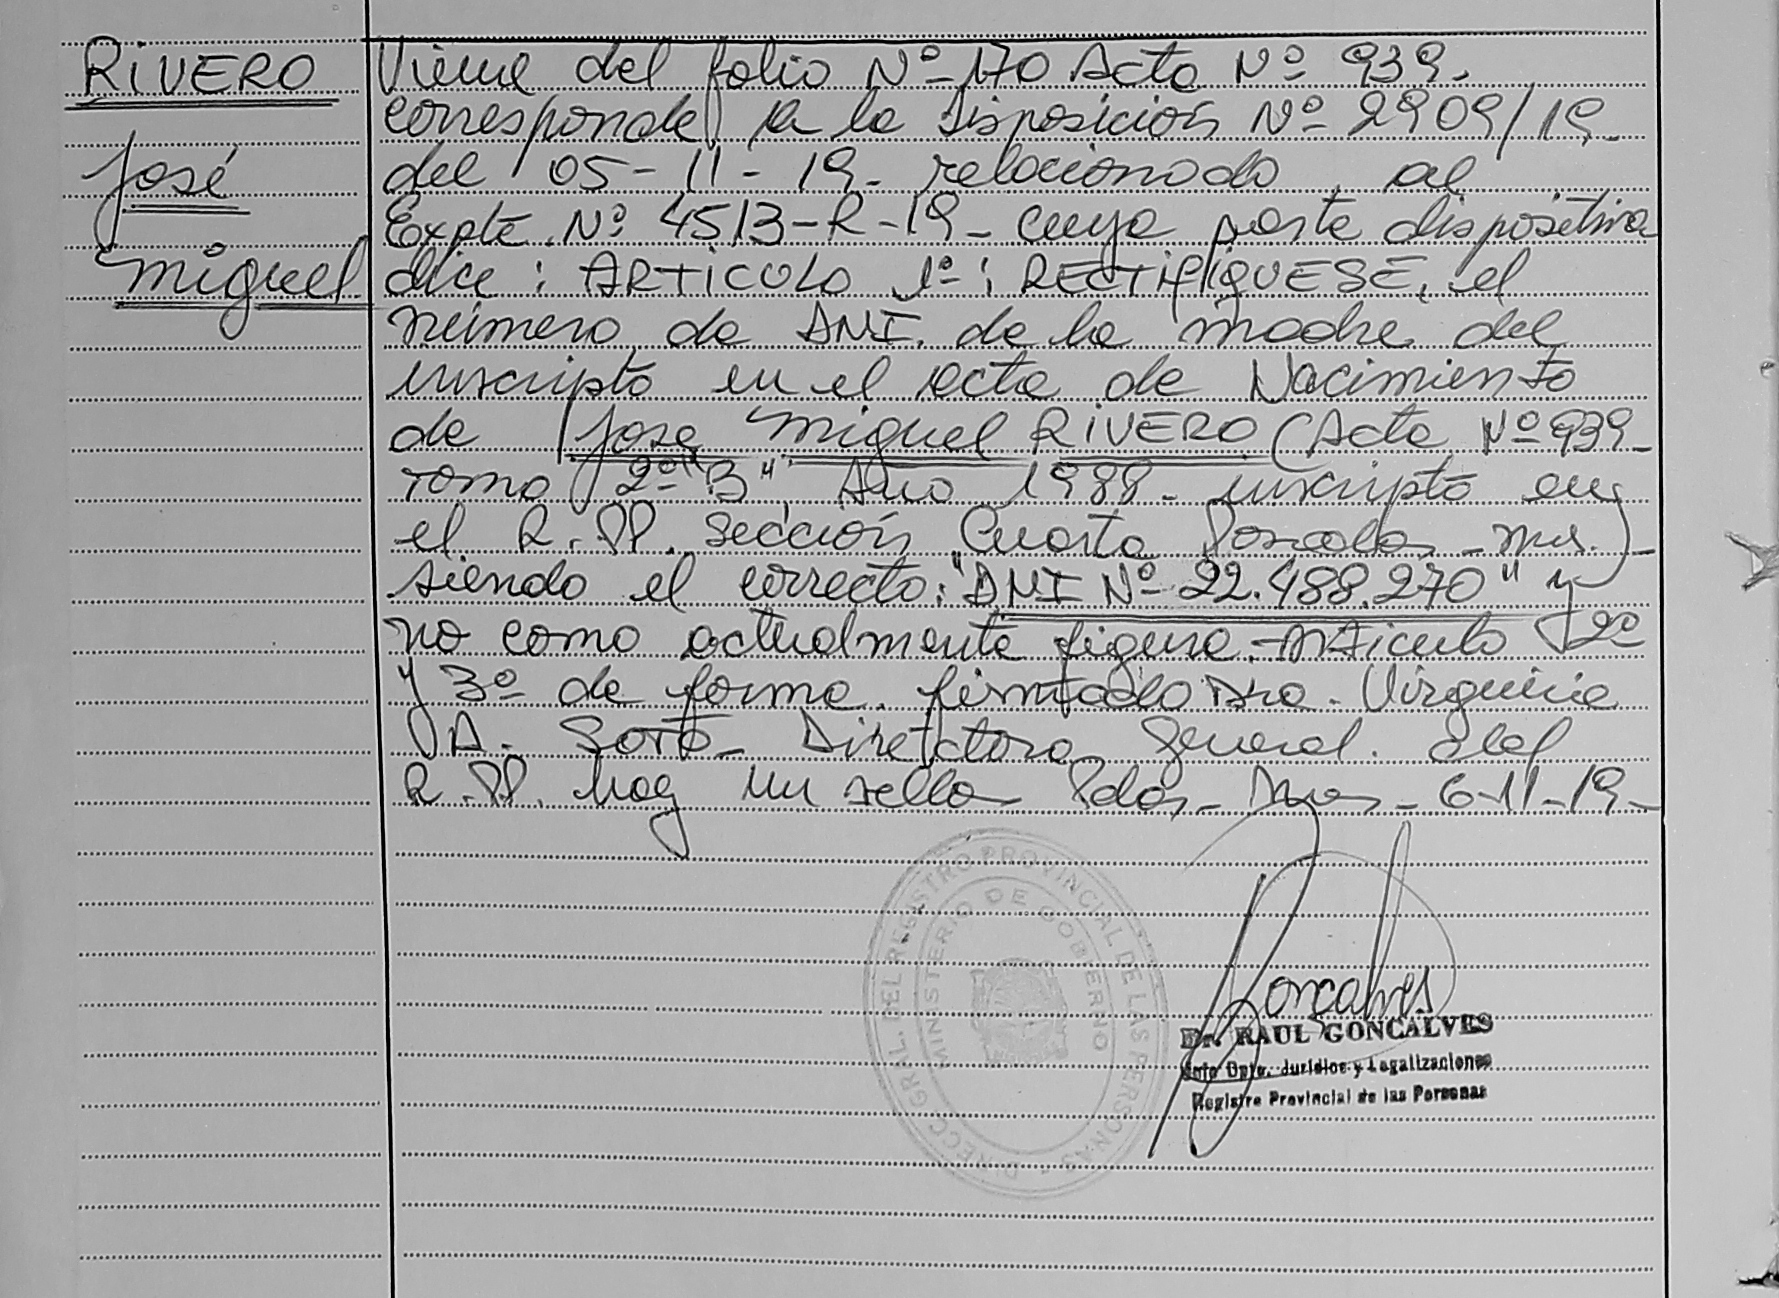 RIVERO
José
Miguel
Viene del folio Nº 170 Acta Nº 939.
corresponde a la Disposición Nº 2909/19
del 05-11-19. relacionado al
Expte. Nº 4513-R-19- cuya parte dispositiva
dice: ARTICULO 1º: RECTIFIQUESE, el
número de DNI. de la madre del
inscripto en el acta de Nacimiento
de José Miguel RIVERO (Acta Nº 939-
Tomo 2º "B" Año 1988- inscripto en
el R.PP. Sección Cuarta Posadas - Mnes.)-
siendo el correcto: "DNI Nº 22.488.270" y
no como actualmente figura.- Artículo 2º
y 3º de forma. firmado Dra. Virginia
A. Soto- Directora General. del
R.PP. hay un sello Pdas- Mnes- 6-11-19-
DIRECC. GRAL. DEL REGISTRO PROVINCIAL DE LAS PERSONAS
MINISTERIO DE GOBIERNO
Goncalves
Dr. RAUL GONCALVES
Dpto. Jurídico y Legalizaciones
Registro Provincial de las Personas